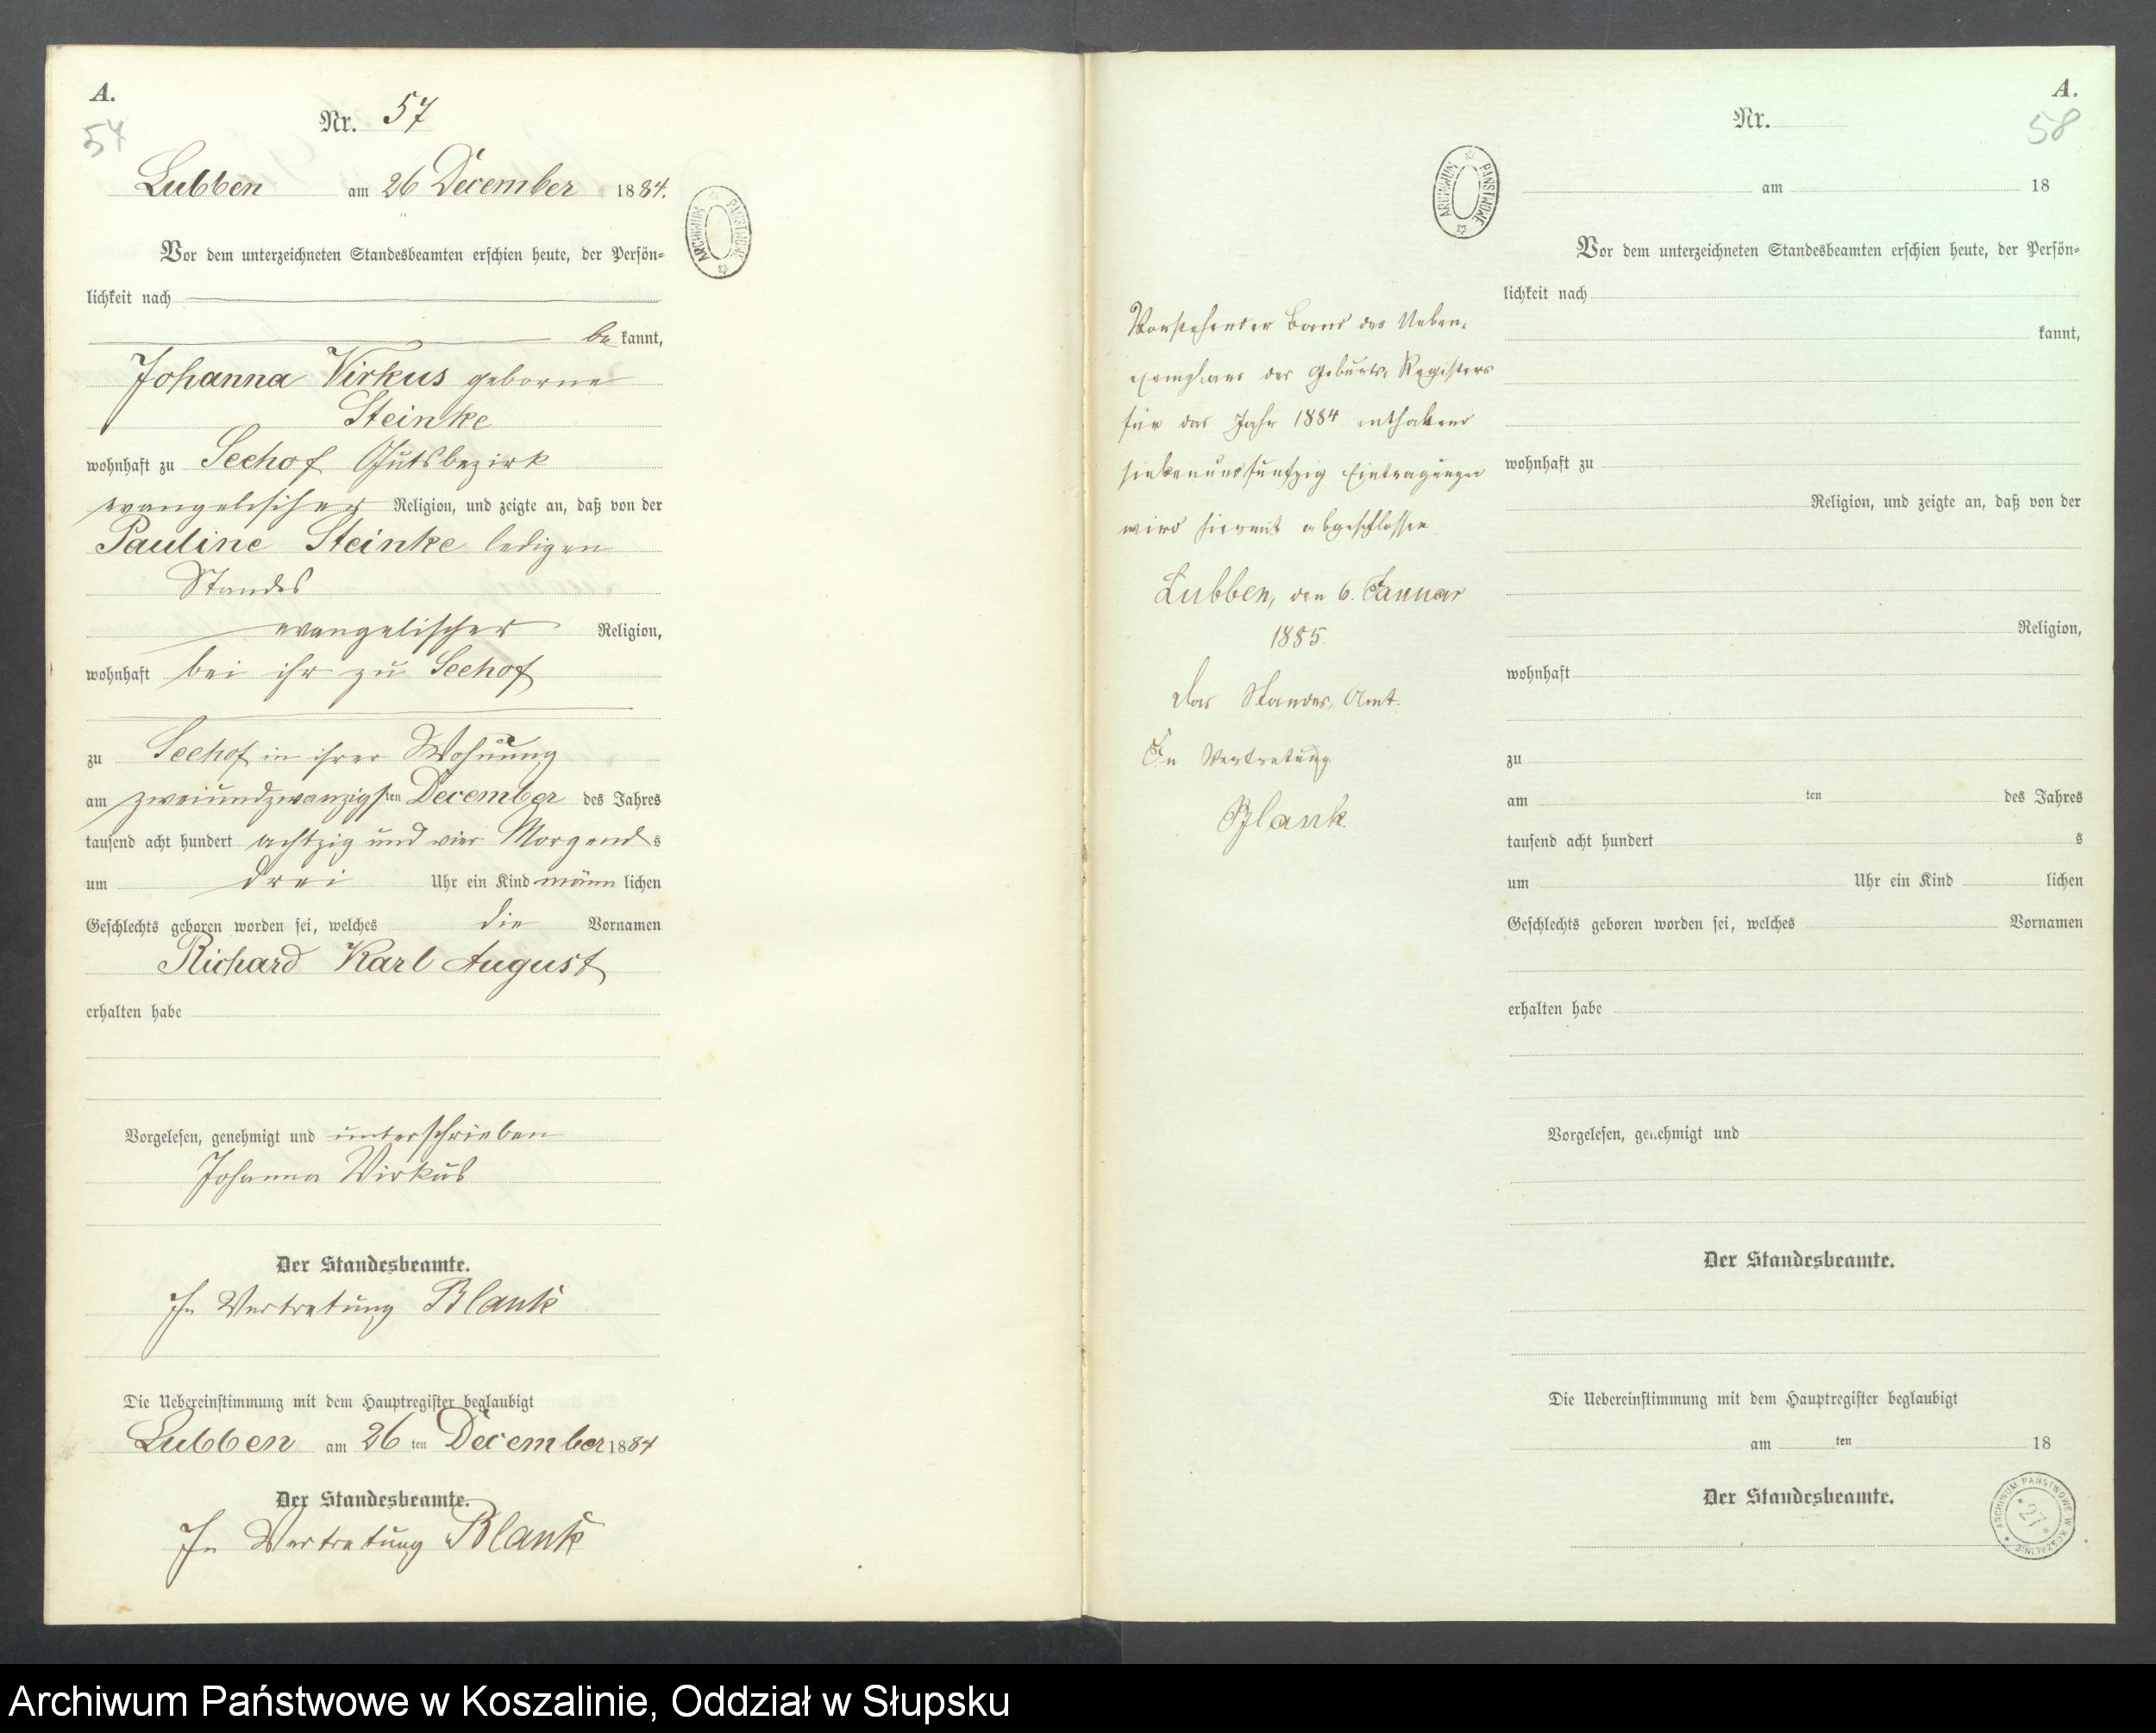 A.
54
Nr. 57
Lubben am 26 December 1884.
Vor dem unterzeichneten Standesbeamten erschien heute, der Persön-
lichkeit nach
be kannt,
Johanna Virkus geborne
Steinke
wohnhaft zu Seehof Gutsbezirk
evangelischer Religion, und zeigte an, daß von der
Pauline Steinke ledigen
Standes
evangelischer Religion,
wohnhaft bei ihr zu Seehof
zu Seehof in ihrer Wohnung
am zweiundzwanzigsten December des Jahres
tausend acht hundert achtzig und vier Morgends
um drei Uhr ein Kind männlichen
Geschlechts geboren worden sei, welches die Vornamen
Richard Karl August
erhalten habe
Vorgelesen, genehmigt und unterschrieben
Johanna Virkus
Der Standesbeamte.
In Vertretung Blank
Die Uebereinstimmung mit dem Hauptregister beglaubigt
Lubben am 26 ten December 1884
Der Standesbeamte.
In Vertretung Blank
ARCHIWUM PAŃSTWOWE
A.
58
Nr.
am 18
ARCHIWUM PAŃSTWOWE
Vor dem unterzeichneten Standesbeamten erschien heute, der Persön-
lichkeit nach
kannt,
wohnhaft zu
Religion, und zeigte an, daß von der
Religion,
wohnhaft
zu
am ten des Jahres
tausend acht hundert s
um Uhr ein Kind lichen
Geschlechts geboren worden sei, welches Vornamen
erhalten habe
Vorgelesen, genehmigt und
Der Standesbeamte.
Die Uebereinstimmung mit dem Hauptregister beglaubigt
am ten 18
Der Standesbeamte.
ARCHIWUM PAŃSTWOWE W KOSZALINIE
27
Vorstehender Band des Neben-
exemplars des Geburts-Registers
für das Jahr 1884 enthaltend
siebenundfunfzig Eintragungen
wird hiermit abgeschlossen
Lubben, den 6. Januar
1885.
Das Standes-Amt.
In Vertretung
Blank.
Archiwum Państwowe w Koszalinie, Oddział w Słupsku